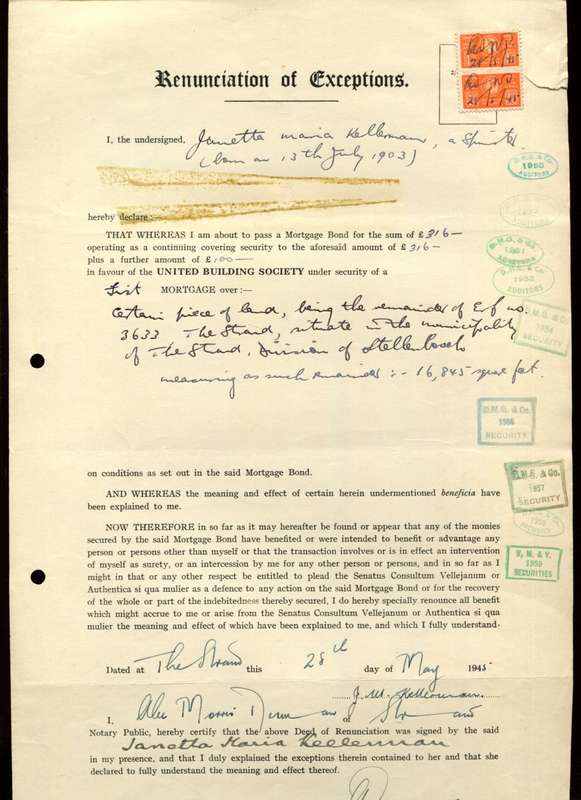 Renunciation of Exceptions.
I, the undersigned, Janetta Maria Kellerman, a Spinster
(born on 13th July 1903)
hereby declare:—
THAT WHEREAS I am about to pass a Mortgage Bond for the sum of £316—
operating as a continuing covering security to the aforesaid amount of £316—
plus a further amount of £100—
in favour of the UNITED BUILDING SOCIETY under security of a
First MORTGAGE over:—
Certain piece of land, being the remainder of Erf no.
3633 The Strand, situate in the municipality
of The Strand, Division of Stellenbosch
measuring as such remainder :- 16,845 square feet.
on conditions as set out in the said Mortgage Bond.
AND WHEREAS the meaning and effect of certain herein undermentioned beneficia have
been explained to me.
NOW THEREFORE in so far as it may hereafter be found or appear that any of the monies
secured by the said Mortgage Bond have benefited or were intended to benefit or advantage any
person or persons other than myself or that the transaction involves or is in effect an intervention
of myself as surety, or an intercession by me for any other person or persons, and in so far as I
might in that or any other respect be entitled to plead the Senatus Consultum Vellejanum or
Authentica si qua mulier as a defence to any action on the said Mortgage Bond or for the recovery
of the whole or part of the indebitedness thereby secured, I do hereby specially renounce all benefit
which might accrue to me or arise from the Senatus Consultum Vellejanum or Authentica si qua
mulier the meaning and effect of which have been explained to me, and which I fully understand.
Dated at The Strand this 28th day of May 1945
J. M. Kellerman.
I, Alec Morris of Strand
Notary Public, hereby certify that the above Deed of Renunciation was signed by the said
Janetta Maria Kellerman
in my presence, and that I duly explained the exceptions therein contained to her and that she
declared to fully understand the meaning and effect thereof.
1950
AUDITORS
D.M.G. & Co.
1951
AUDITORS
D.M.G. & Co.
1953
AUDITORS
D.M.G. & Co.
1954
SECURITY
D.M.G. & Co.
1956
SECURITY
D.M.G. & Co.
1957
SECURITY
1959
SECURITIES